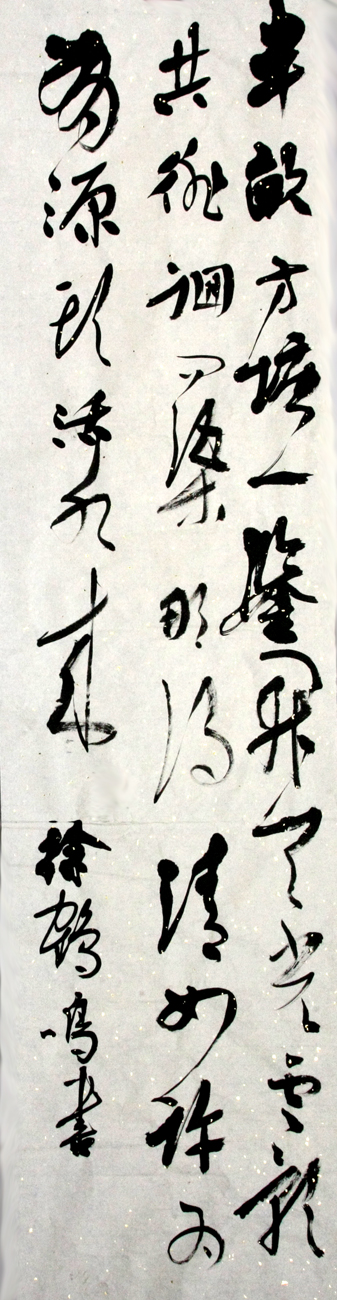 半畝方塘一鑒開天光雲影
共徘徊問渠那得清如許為
有源頭活水來 徐鶴鳴書